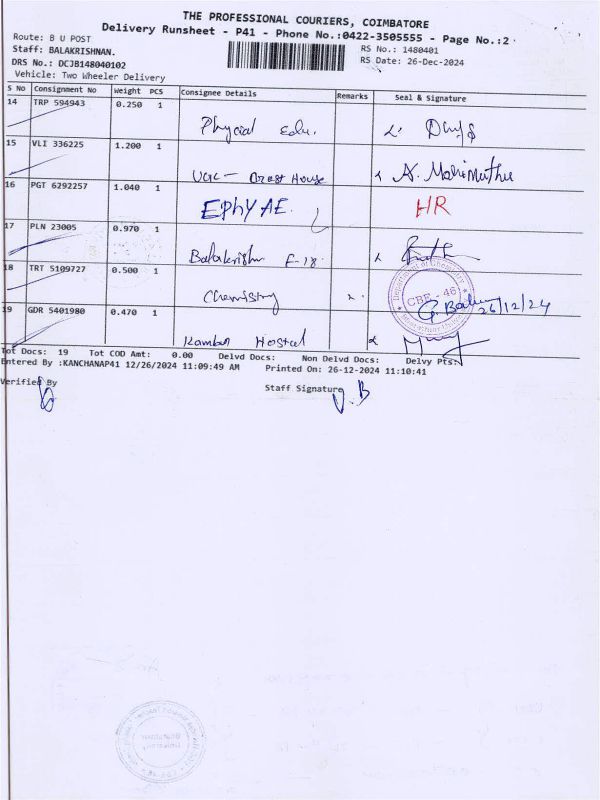 THE PROFESSIONAL COURIERS, COIMBATORE
Delivery Runsheet - P41 - Phone No.:0422-3505555 - Page No.:2
Route: B U POST
RS No.: 1480401
Staff: BALAKRISHNAN.
RS Date: 26-Dec-2024
DRS No.: DCJB148040102
Vehicle: Two Wheeler Delivery
S No Consignment No Weight PCS Consignee Details Remarks Seal & Signature
14 TRP 594943 0.250 1
Physical Edu.
15 VLI 336225 1.200 1
UGC - Guest House A. Marimuthu
16 PGT 6292257 1.040 1
EPHYAE. HR
17 PLN 23005 0.970 1
Balakrishn F-18.
18 TRT 5109727 0.500 1
Chemistry
Department of Chemistry
CBE - 46
26/12/24
19 GDR 5401980 0.470 1
Kamban Hostel
Tot Docs: 19 Tot COD Amt: 0.00 Delvd Docs: Non Delvd Docs: Delvy Pts:
Entered By :KANCHANAP41 12/26/2024 11:09:49 AM Printed On: 26-12-2024 11:10:41
Verified By Staff Signature
V.B